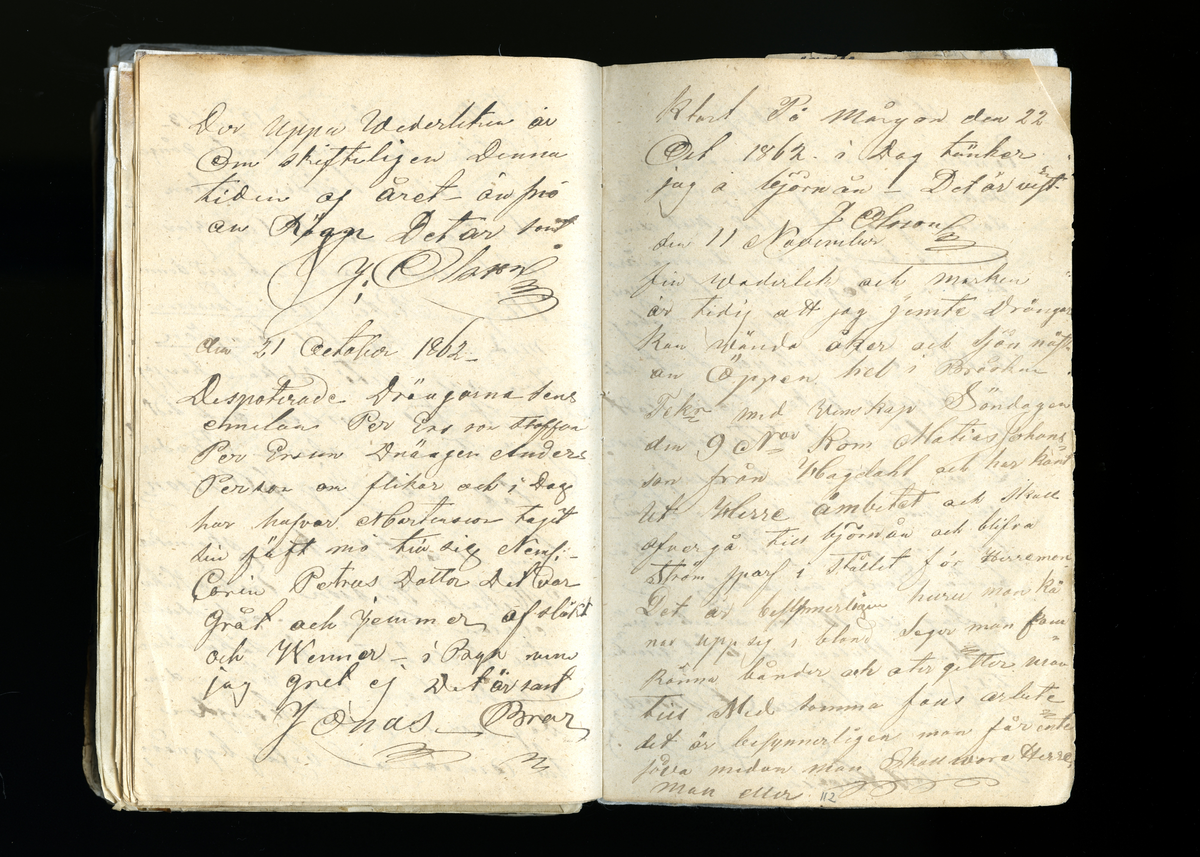 Der uppa Wederleken är
Om skifteligen denna
tiden af året - än snö
än Rägn Det är sant
J: Olsson
den 21 October 1862 -
Despoterade Drängarna Jens
emelan Per Ers son Stoffan
Per Ersson Drängen Anders
Person om flikor och i Dag
har hafvar Mortenson taget
sin fäst mö till sig Neml:
Carin Petrus Dotter Det var
Gråt och Jemmer af släkt
och Wenner - i Byn men
jag gret ej Det är sant
Jonas Bror
Klart På Morgon den 22
Oct 1862. i Dag tänker
jag a Björn ån - Det är vist
J Olsson
den 11 November
fin waderlek och marken
är tidig att jag jemte Drängar
kan Wända åker och sjön näst
an Öppen hel i Bråskan
Tekn med Wenskap Söndagen
den 9 Nov Kom Matias Johans
son från Hagdahl och har känt
ut Herre ämbetet och skall
ofvergå till Björnån och blifva
Ström sparf i stället för Herreman
Det är besynnerligen huru man kä
nar upp sig i bland Seger man
känna bänder och ater gitter man
till Med somma fans arbete
det är besynnerligen man får ente
medan man Skall wara Herre
man eller 112